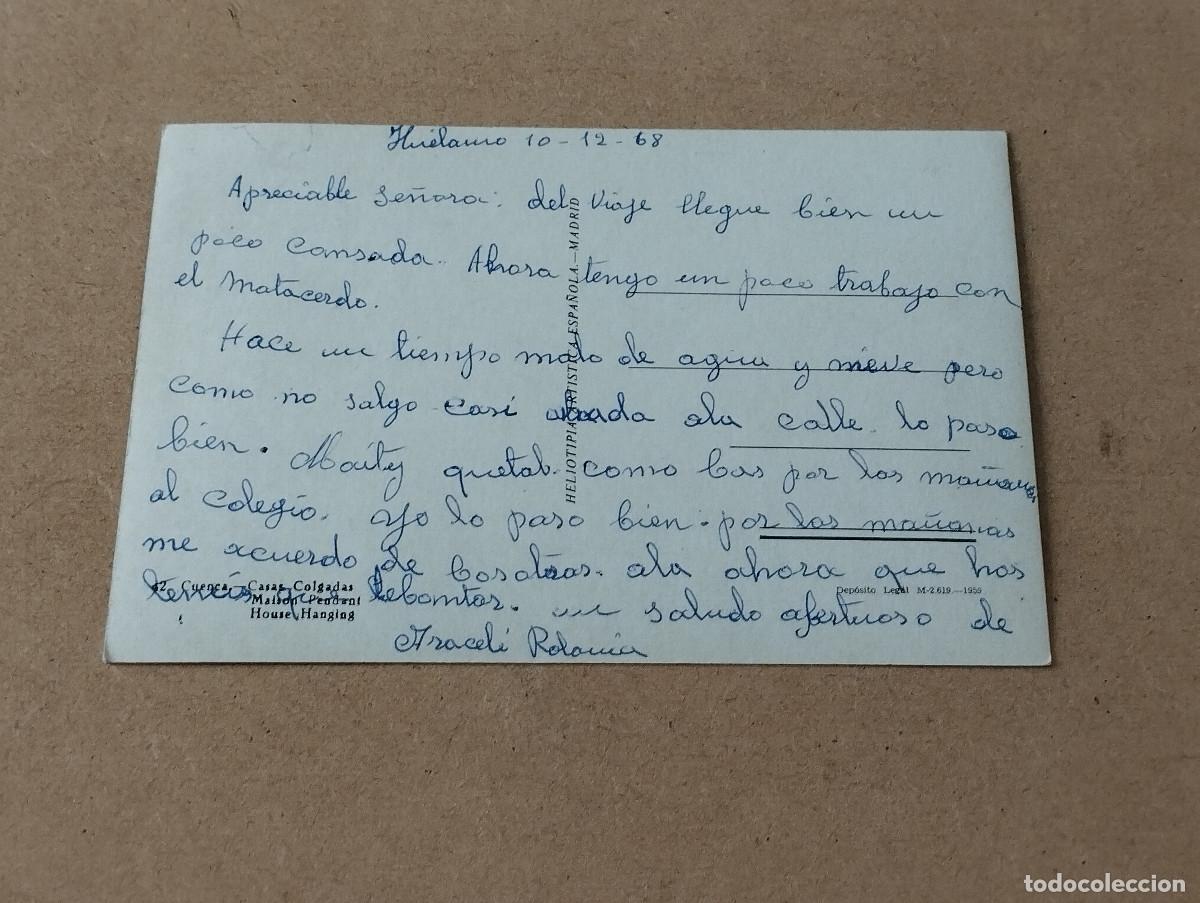 Huélamo 10-12-68
Apreciable Señora: del Viaje llegue bien un
poco Cansada. Ahora tengo un poco trabajo con
el Matacerdo.
Hace un tiempo malo de agua y nieve pero
como no salgo casi nada ala calle lo paso
bien. Maity quetal como bas por las mañanas
al colegio. Yo lo paso bien. por las mañanas
me acuerdo de bosatras. ala ahora que hos
teneis que lebantar. un saludo afertuoso de
Araceli
HELIOTIPIA ARTISTICA ESPAÑOLA.—MADRID
62 Cuenca.-Casas Colgadas
Maison Pendant
House Hanging
Depósito Legal M-2.619.—1959
todocoleccion